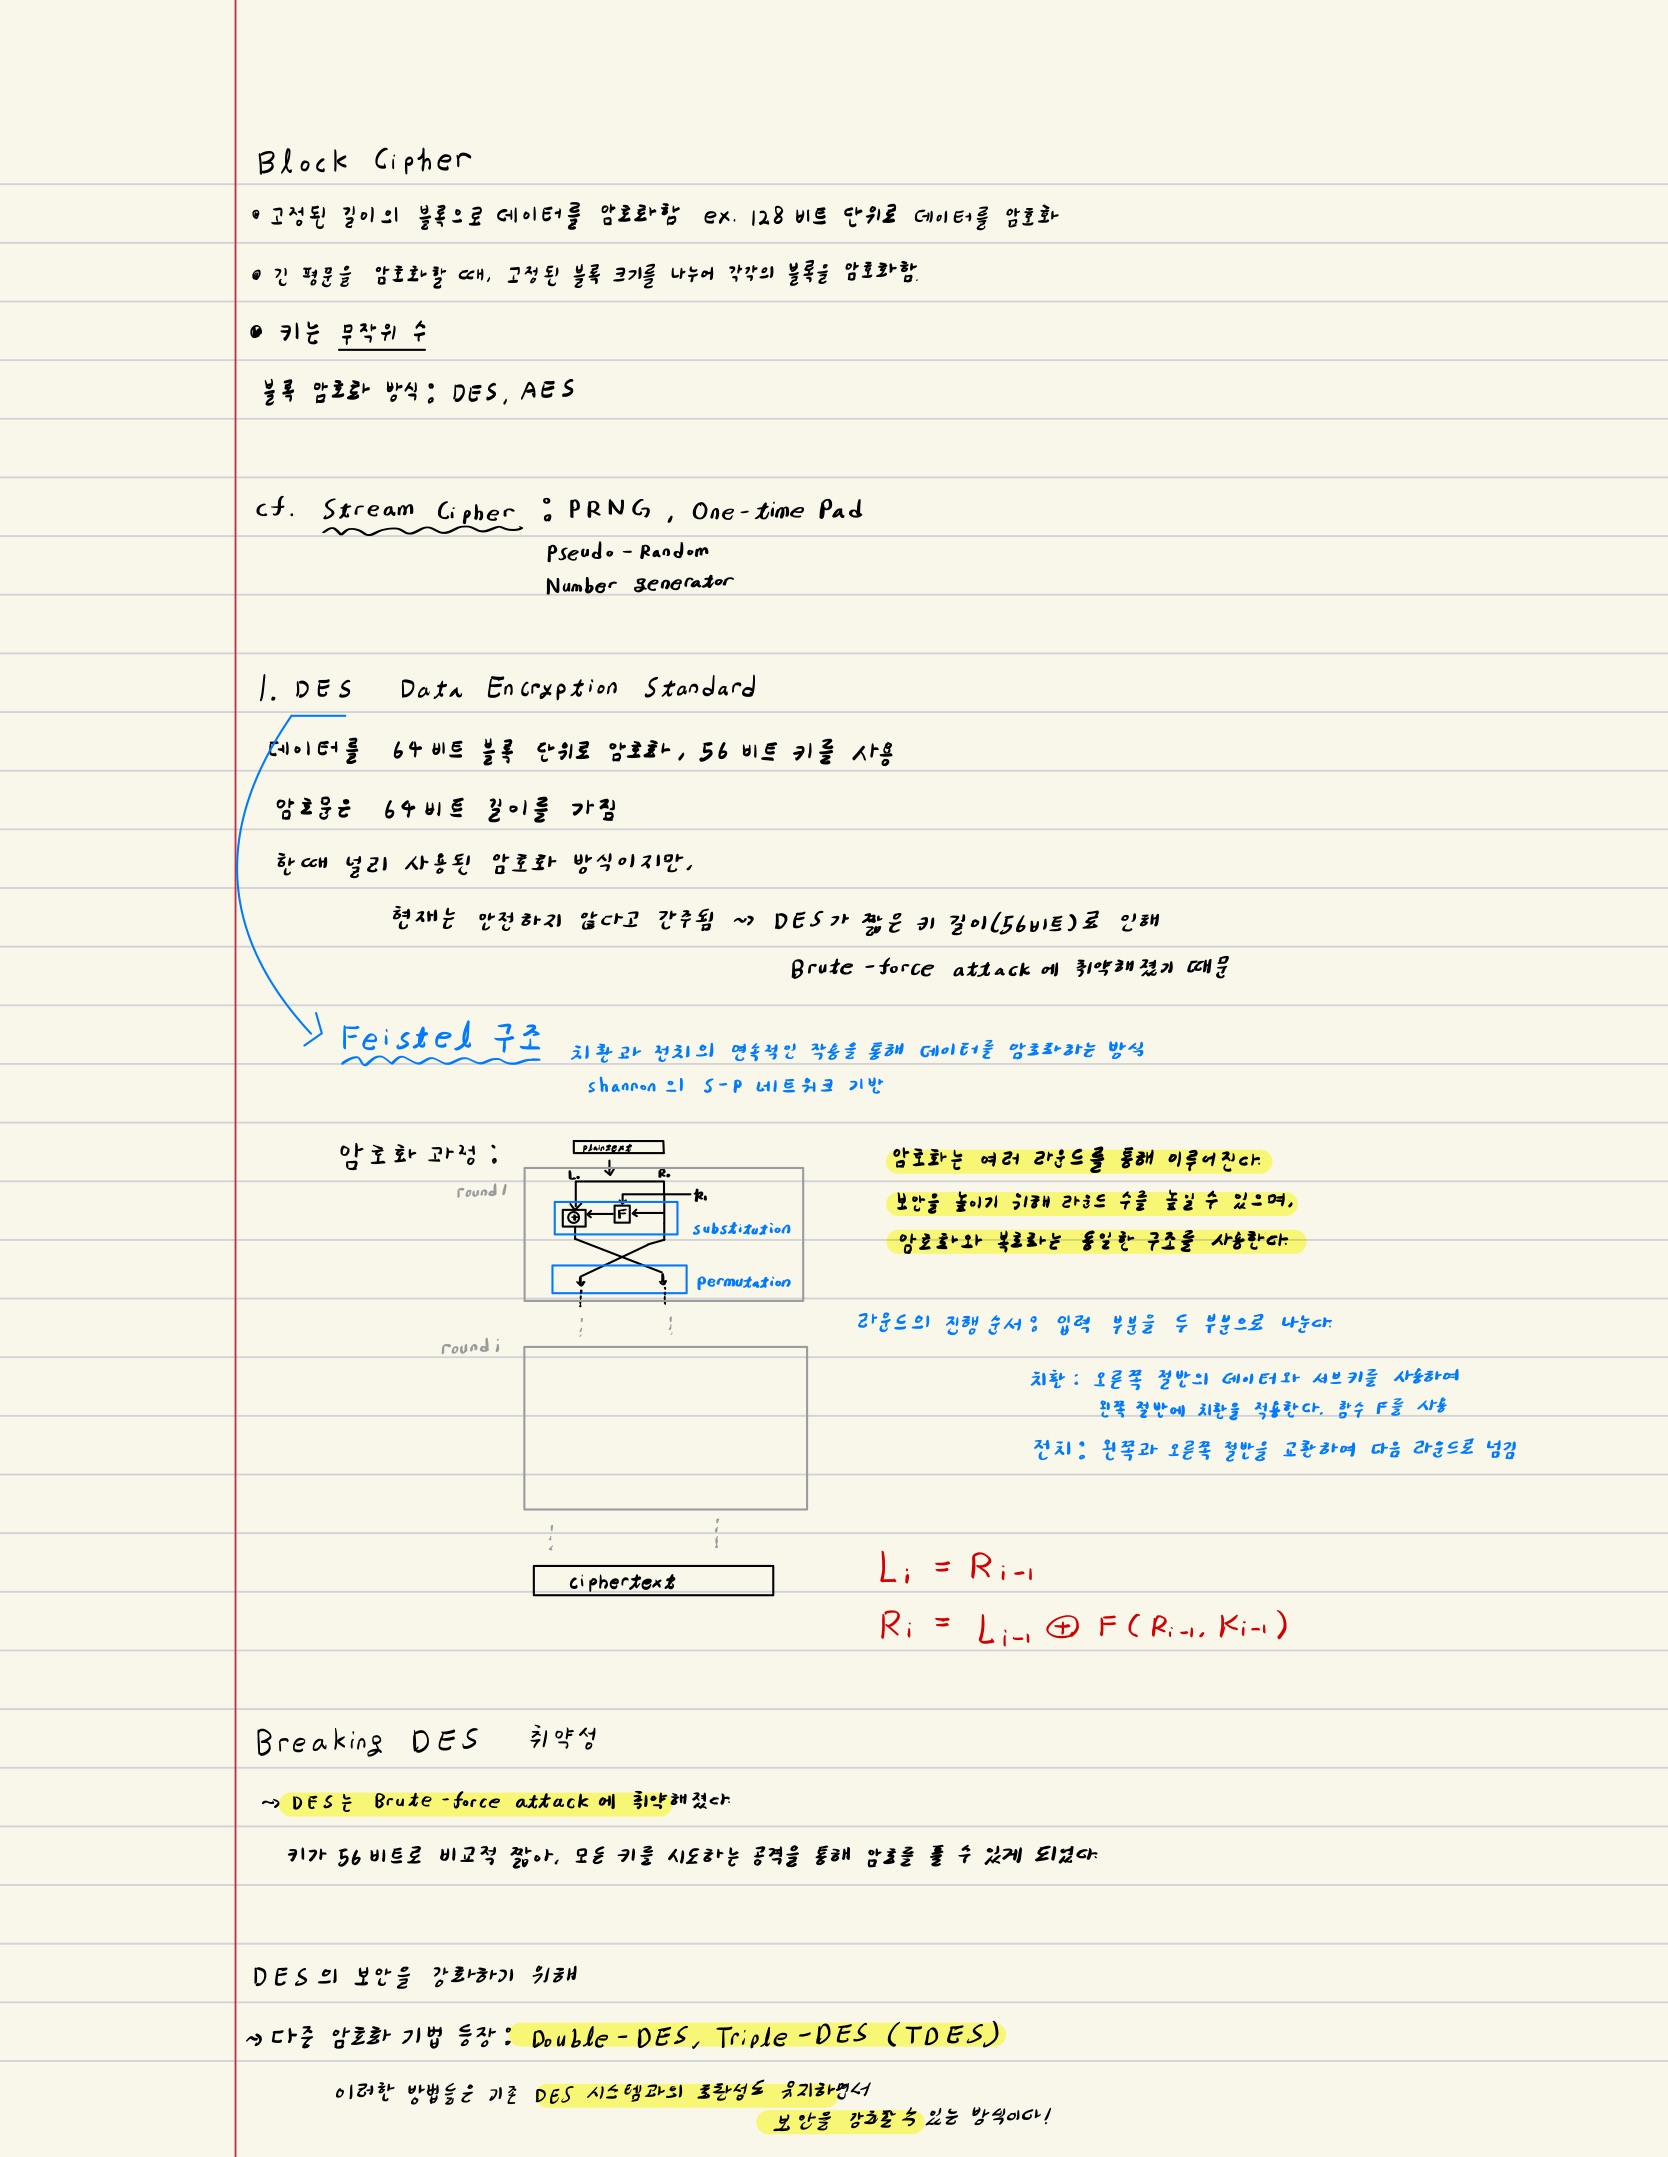 Block Cipher
• 고정된 길이의 블록으로 데이터를 암호화함 ex. 128 비트 단위로 데이터를 암호화
• 긴 평문을 암호화할 때, 고정된 블록 크기를 나누어 각각의 블록을 암호화함.
• 키는 무작위 수
블록 암호화 방식 : DES, AES
cf. Stream Cipher : PRNG, One-time Pad
Pseudo-Random
Number generator
1. DES Data Encryption Standard
데이터를 64비트 블록 단위로 암호화, 56비트 키를 사용
암호문은 64비트 길이를 가짐
한때 널리 사용된 암호화 방식이지만,
현재는 안전하지 않다고 간주됨 ~> DES가 짧은 키 길이(56비트)로 인해
Brute-force attack에 취약해졌기 때문
Feistel 구조 치환과 전치의 연속적인 작용을 통해 데이터를 암호화하는 방식
shannon의 S-P 네트워크 기반
암호화 과정 :
plaintext
L₀ R₀
round 1
K₁
F
substitution
permutation
암호화는 여러 라운드를 통해 이루어진다.
보안을 높이기 위해 라운드 수를 높일 수 있으며,
암호화와 복호화는 동일한 구조를 사용한다.
라운드의 진행 순서 : 입력 부분을 두 부분으로 나눈다.
round i
치환 : 오른쪽 절반의 데이터와 서브키를 사용하여
왼쪽 절반에 치환을 적용한다. 함수 F를 사용
전치 : 왼쪽과 오른쪽 절반을 교환하여 다음 라운드로 넘김
ciphertext
Li = Ri-1
Ri = Li-1 ⊕ F(Ri-1, Ki-1)
Breaking DES 취약성
~> DES는 Brute-force attack에 취약해졌다.
키가 56비트로 비교적 짧아, 모든 키를 시도하는 공격을 통해 암호를 풀 수 있게 되었다.
DES의 보안을 강화하기 위해
~> 다중 암호화 기법 등장 : Double-DES, Triple-DES (TDES)
이러한 방법들은 기존 DES 시스템과의 호환성도 유지하면서
보안을 강화할 수 있는 방식이다!